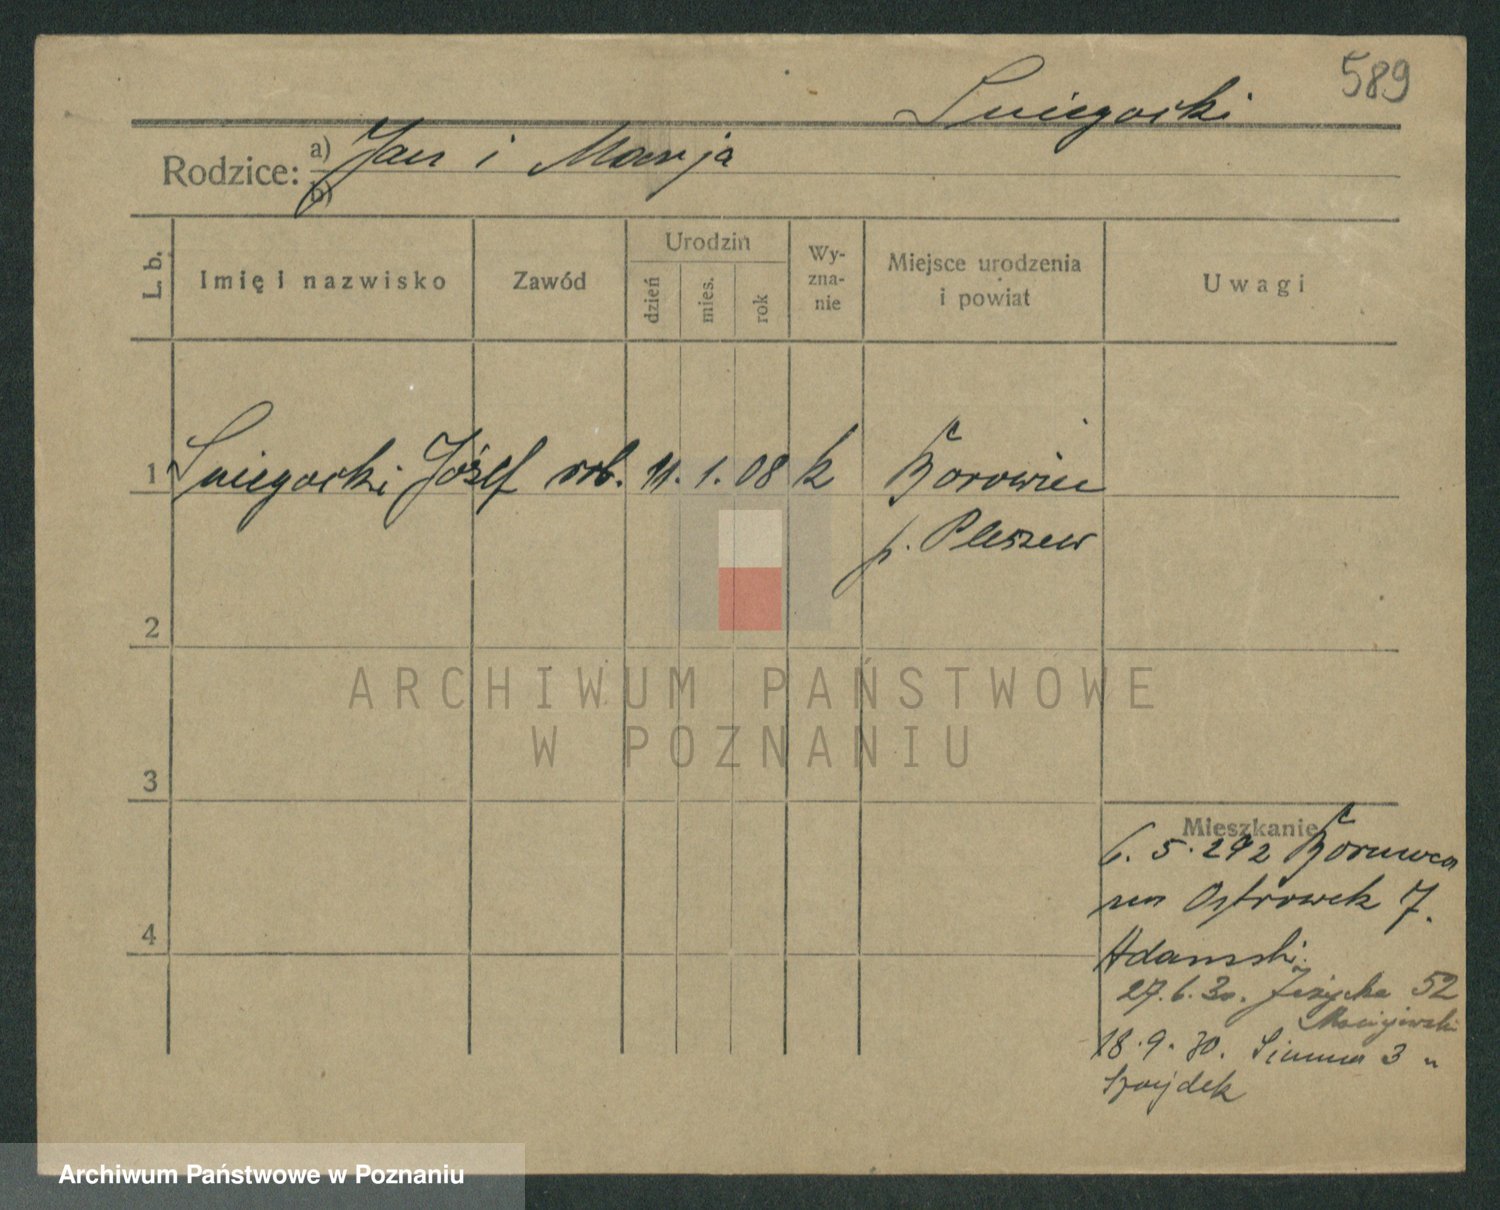 589
Sniegocki
Rodzice: a) Jan i Marja
b)
L. b.
Imię i nazwisko
Zawód
Urodzin
dzień
mies.
rok
Wy-
zna-
nie
Miejsce urodzenia
i powiat
Uwagi
1 Sniegocki Józef rob. 11. 1. 08 k Borowiec
p. Pleszew
2
3
4
ARCHIWUM PAŃSTWOWE
W POZNANIU
Mieszkanie
6. 5. 292
Ostrówek 7.
Adamski.
27. 6. 30. Jeżycka 52
Maciejewski
18. 9. 30. 3 u
Szajdek
Archiwum Państwowe w Poznaniu